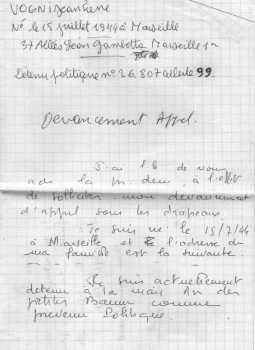 VOGNI Jean Pierre
Né le 15 juillet 1944 à Marseille
37 Allées Jean Gambetta Marseille 1er
Détenu politique n° 26.807 cellule 99.
Devancement Appel.
de vous
à l'effet
de solliciter mon devancement
d'appel sous les drapeaux.
Je suis né le 15/7/44
à Marseille et l'adresse de
ma famille est la suivante
Je suis actuellement
détenu à la maison des
petites Baumettes comme
prévenu Politique.